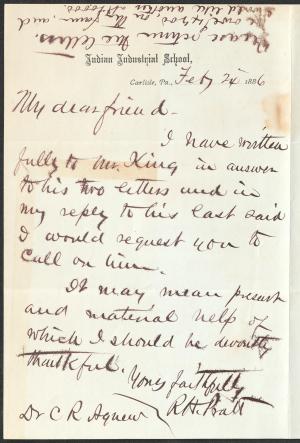 Please return the letters.
We owe $4500. on the farm, and
would like another $10000.
Indian Industrial School,
Carlisle, Pa., Feby 24 1886
My dear friend -
I have written
fully to Mr. King in answer
to his two letters and in
my reply to his last said
I would request you to
call on him.
It may mean present
and material help of
which I should be devoutly
thankful.
Yours faithfully
Dr C R Agnew R.H. Pratt